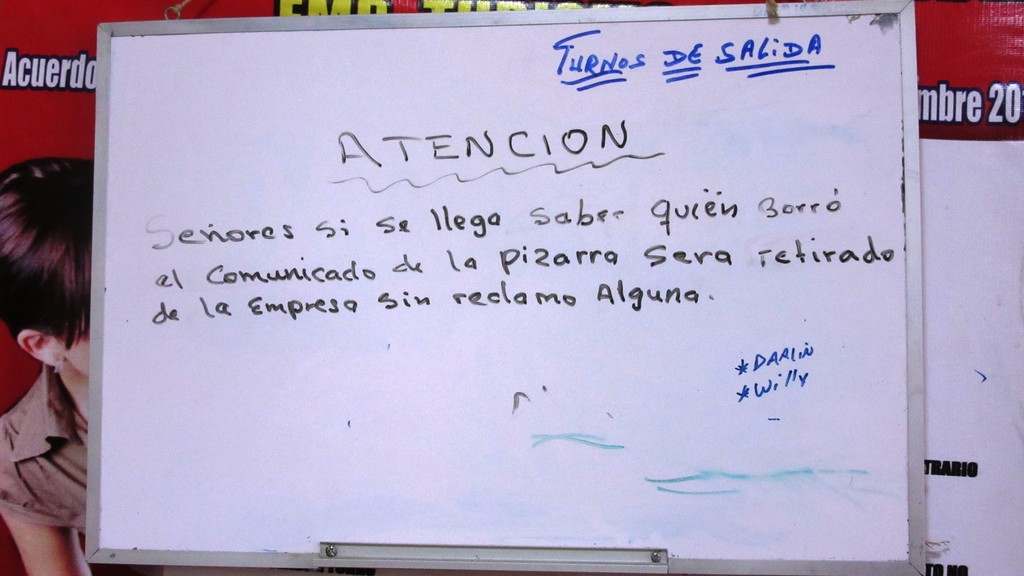 Acuerdo
TURNOS DE SALIDA
ATENCION
Señores si se llega saber quien Borró
el comunicado de la pizarra sera retirado
de la Empresa sin reclamo Alguna.
*DARLIN
*Willy
mbre 20
TRARIO
TO NO